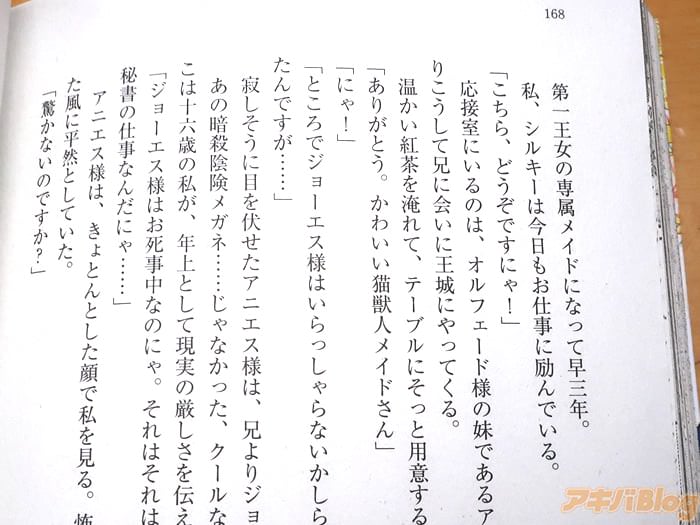 168
第一王女の専属メイドになって早三年。
私、シルキーは今日もお仕事に励んでいる。
「こちら、どうぞですにゃ！」
応接室にいるのは、オルフェード様の妹であるア
りこうして兄に会いに王城にやってくる。
温かい紅茶を淹れて、テーブルにそっと用意する
「ありがとう。かわいい猫獣人メイドさん」
「にゃ！」
「ところでジョーエス様はいらっしゃらないかしら
たんですが……」
寂しそうに目を伏せたアニエス様は、兄よりジョ
あの暗殺陰険メガネ……じゃなかった、クールな
こは十六歳の私が、年上として現実の厳しさを伝え
「ジョーエス様はお死事中なのにゃ。それはそれは
秘書の仕事なんだにゃ……」
アニエス様は、きょとんとした顔で私を見る。怖
た風に平然としていた。
「驚かないのですか？」
アキバBlog